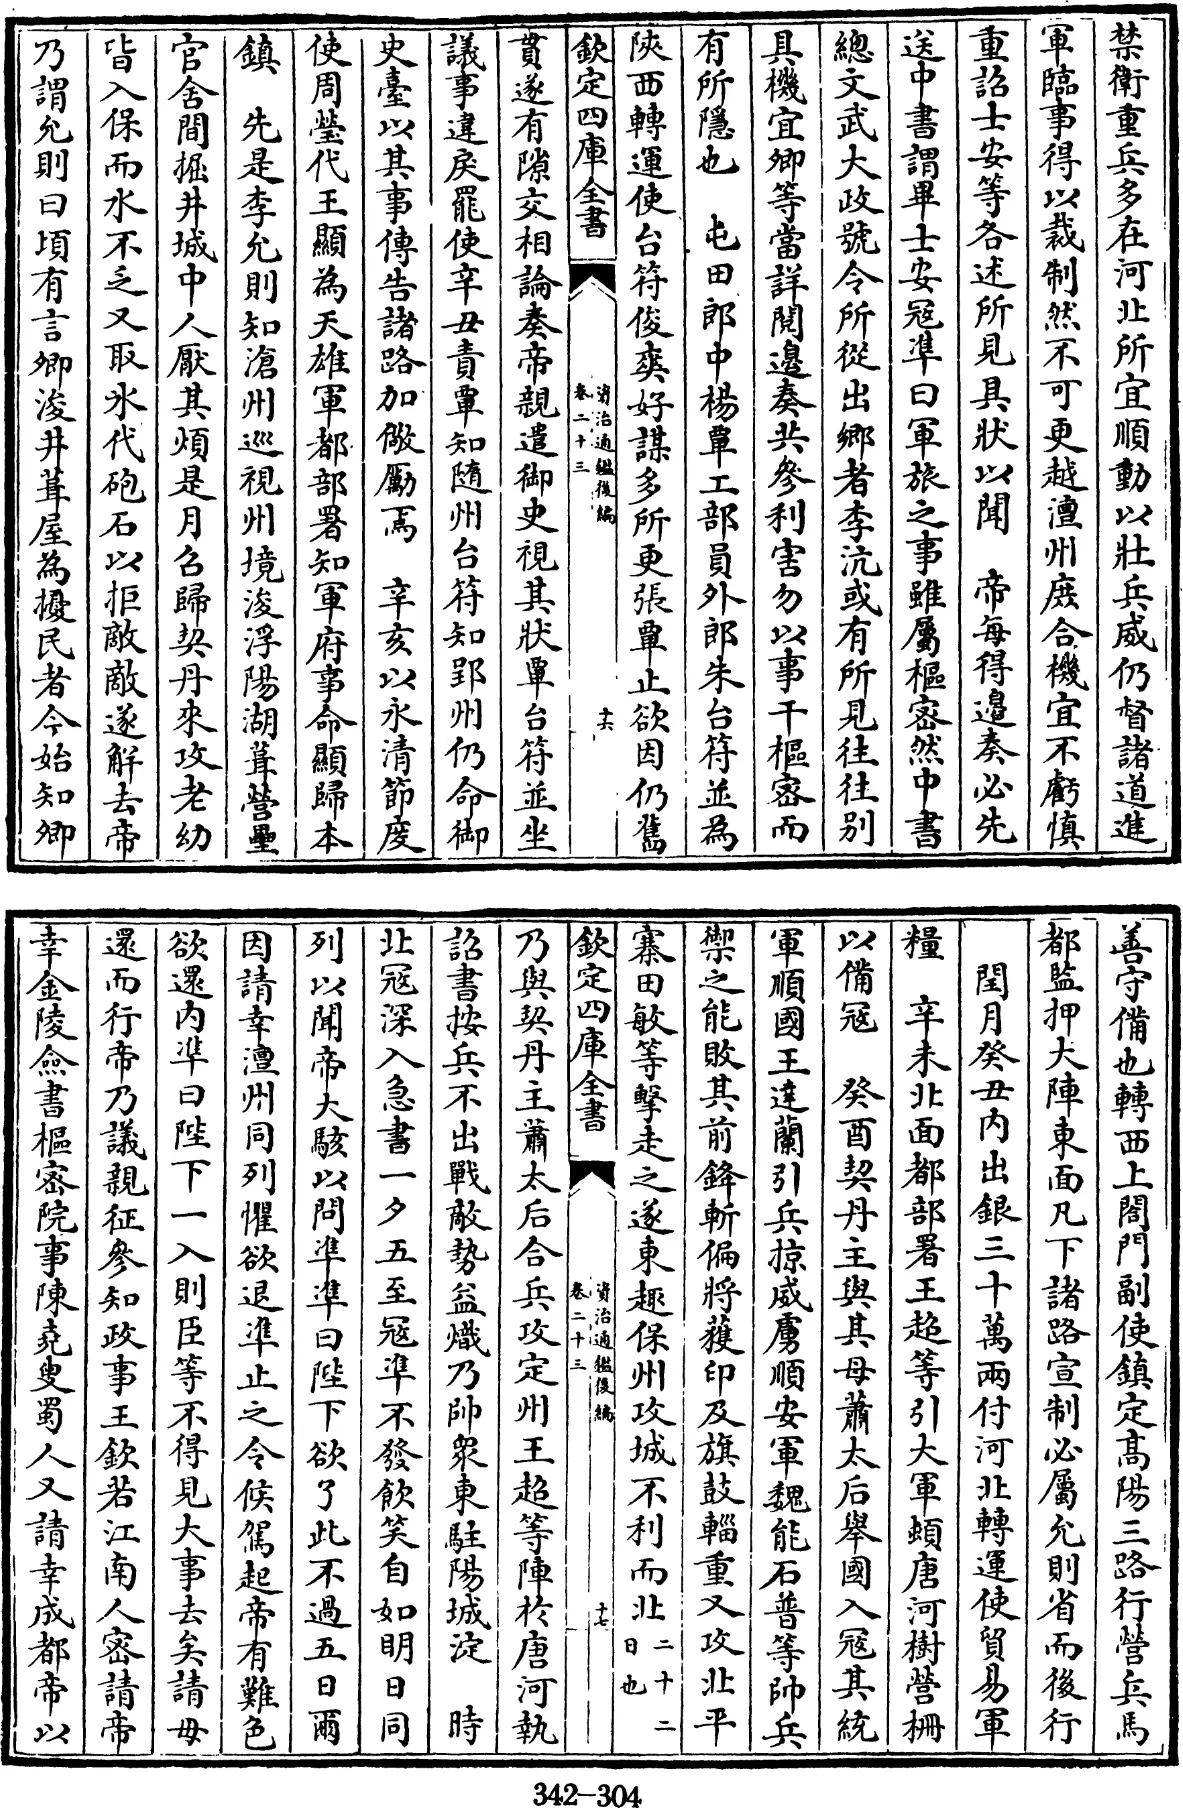 禁衛重兵多在河北所宜順動以壯兵威仍督諸道進
軍臨事得以裁制然不可更越澶州庶合機宜不虧慎
重詔士安等各述所見具狀以聞　帝每得邊奏必先
送中書謂畢士安寇凖曰軍旅之事雖屬樞密然中書
總文武大政號令所從出鄉者李沆或有所見往往別
具機宜卿等當詳閱邊奏共參利害勿以事干樞密而
有所隱也　屯田郎中楊覃工部員外郎朱台符並為
陜西轉運使台符俊爽好謀多所更張覃止欲因仍舊
欽定四庫全書
資治通鑑後編
卷二十三
十六
貫遂有隙交相論奏帝親遣御史視其狀覃台符並坐
議事違戾罷使辛丑責覃知隨州台符知郢州仍命御
史臺以其事傳告諸路加儆勵焉　辛亥以永清節度
使周瑩代王顯為天雄軍都部署知軍府事命顯歸本
鎮　先是李允則知滄州巡視州境浚浮陽湖葺營壘
官舍間掘井城中人厭其煩是月召歸契丹來攻老幼
皆入保而水不乏又取氷代砲石以拒敵敵遂解去帝
乃謂允則曰頃有言卿浚井葺屋為擾民者今始知卿
善守備也轉西上閤門副使鎮定高陽三路行營兵馬
都監押大陣東面凡下諸路宣制必屬允則省而後行
閏月癸丑内出銀三十萬兩付河北轉運使貿易軍
糧　辛未北面都部署王超等引大軍頓唐河樹營柵
以備寇　癸酉契丹主與其母蕭太后舉國入寇其統
軍順國王達蘭引兵掠威虜順安軍魏能石普等帥兵
禦之能敗其前鋒斬偏將獲印及旗鼓輜重又攻北平
寨田敏等擊走之遂東趣保州攻城不利而北二十二日也
欽定四庫全書
資治通鑑後編
卷二十三
十七
乃與契丹主蕭太后合兵攻定州王超等陣於唐河執
詔書按兵不出戰敵勢益熾乃帥衆東駐陽城淀　時
北寇深入急書一夕五至寇凖不發飲笑自如明日同
列以聞帝大駭以問凖凖曰陛下欲了此不過五日爾
因請幸澶州同列懼欲退凖止之令候駕起帝有難色
欲還内凖曰陛下一入則臣等不得見大事去矣請毋
還而行帝乃議親征參知政事王欽若江南人密請帝
幸金陵僉書樞密院事陳堯叟蜀人又請幸成都帝以
342-304